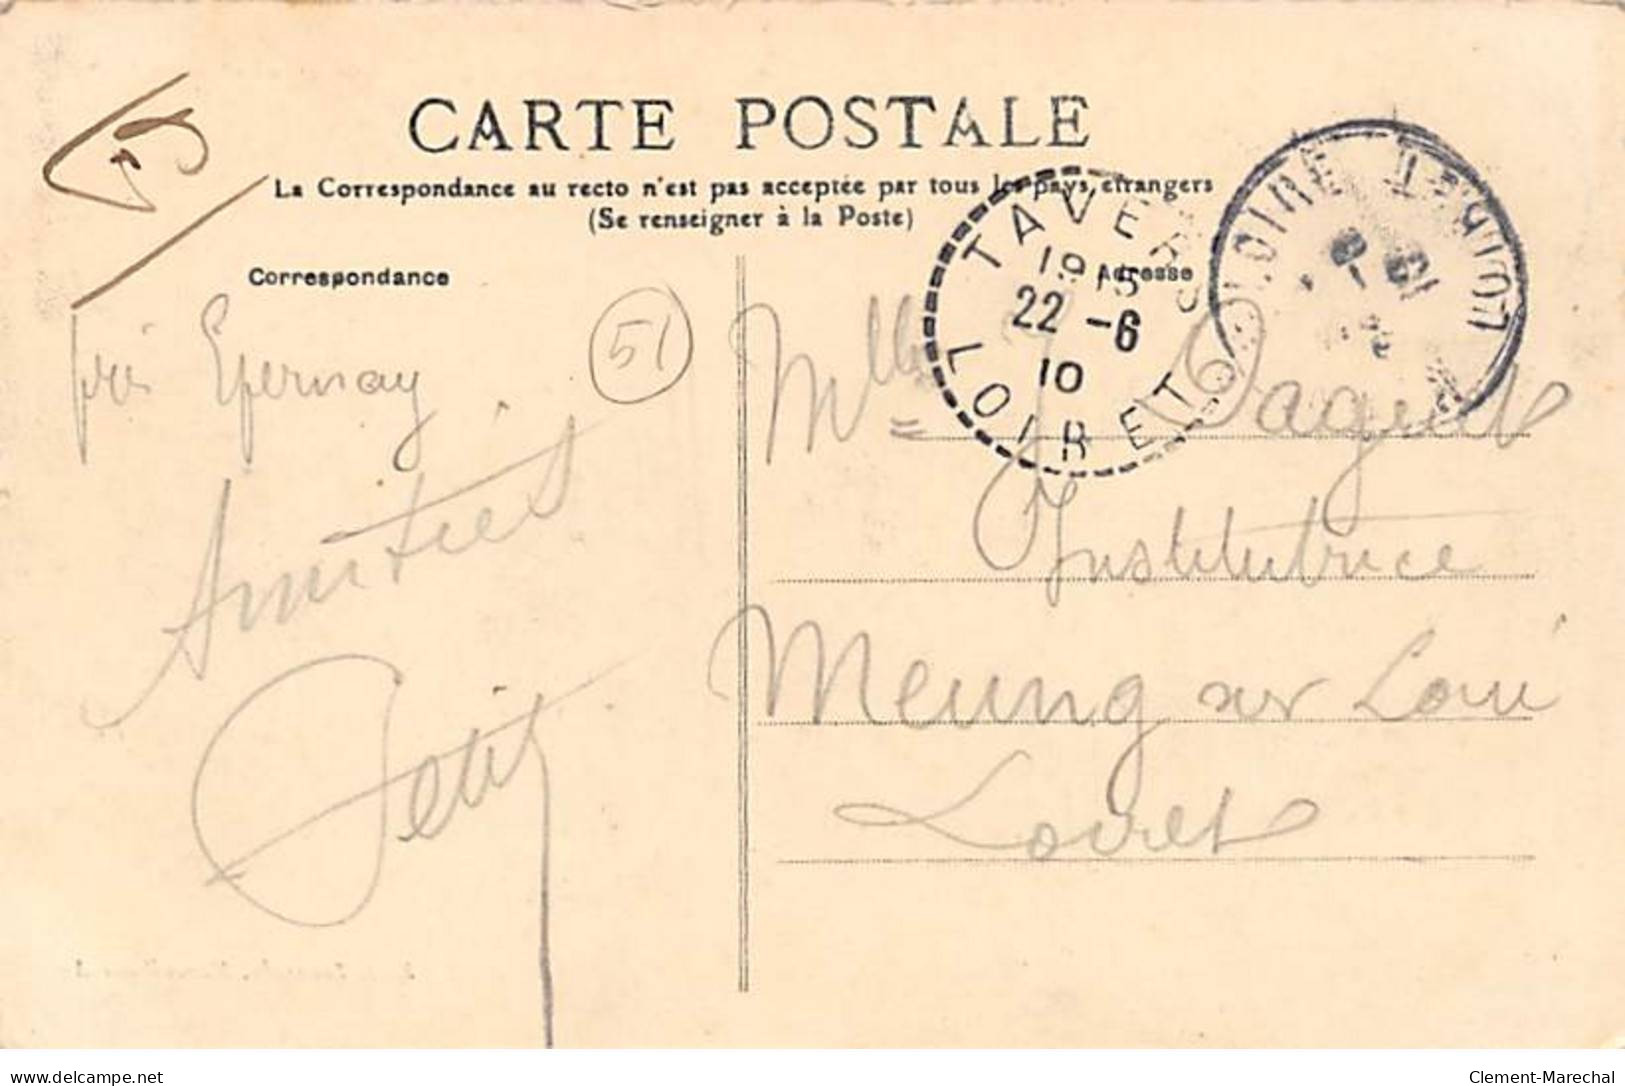 CARTE POSTALE
La Correspondance au recto n'est pas acceptée par tous les pays étrangers
(Se renseigner à la Poste)
Correspondance
Adresse
TAVERS
1915
22 -6
10
LOIRET
51
près Epernay
Amitiés
Petit
Mlle
Institutrice
Meung sur Loire
Loiret
www.delcampe.net
Clement-Marechal